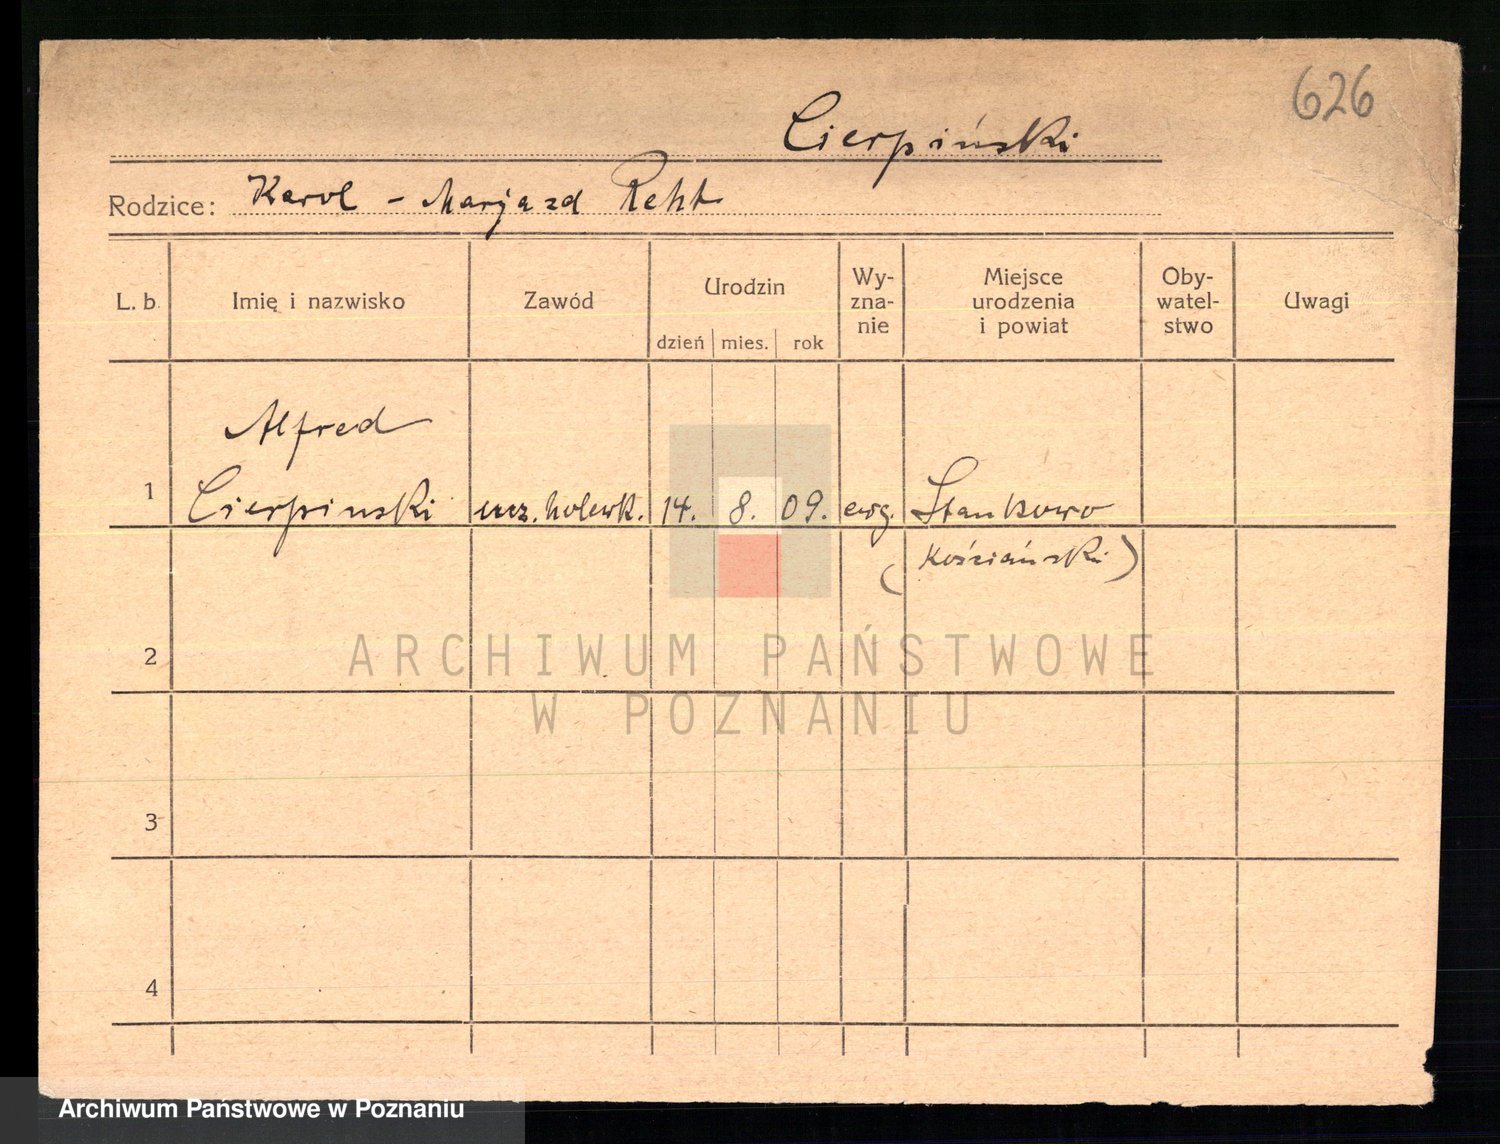 626
Cierpiński
Rodzice: Karol - Marja zd Reht
L. b. Imię i nazwisko Zawód Urodzin dzień mies. rok Wy-
zna-
nie Miejsce
urodzenia
i powiat Oby-
watel-
stwo Uwagi
Alfred
1 Cierpinski ucz. kolewk. 14. 8. 09. ewg. Stankowo
(Kościański)
2
ARCHIWUM PAŃSTWOWE
W POZNANIU
3
4
Archiwum Państwowe w Poznaniu